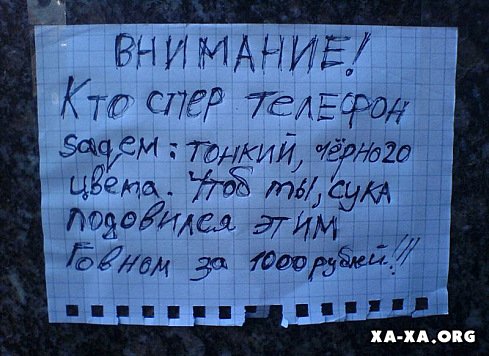 ВНИМАНИЕ!
Кто спер телефон
sagем: тонкий, чёрного
цвета. Чтоб ты, сука
подовился этим
Говном за 1000 рублей!!!
XA-XA.ORG